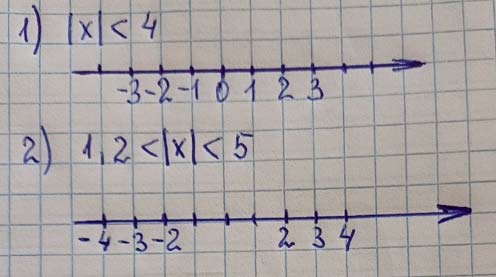 1) |x| < 4
-3 -2 -1 0 1 2 3
2) 1,2 < |x| < 5
-4 -3 -2 2 3 4